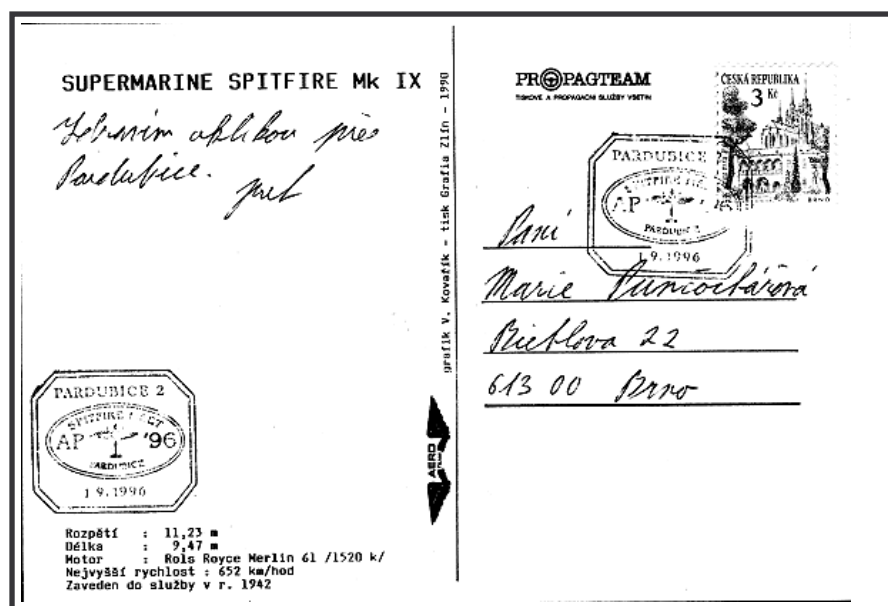 SUPERMARINE SPITFIRE Mk IX
přes
Pardubice.
PARDUBICE 2
SPITFIRE
AP '96
PARDUBICE
1 9.1996
Rozpětí : 11,23 m
Délka : 9,47 m
Motor : Rols Royce Merlin 61 /1520 k/
Nejvyšší rychlost : 652 km/hod
Zaveden do služby v r. 1942
grafik V. Kovařík - tisk Grafia Zlín - 1990
AERO
PROPAGTEAM
TISKOVÉ A PROPAGAČNÍ SLUŽBY VSETÍN
ČESKÁ REPUBLIKA
3 Kč
BRNO
PARDUBICE
SPITFIRE
AP '96
PARDUBICE
1 9.1996
Paní
Marie Punčochářová
Bieblova 22
613 00 Brno